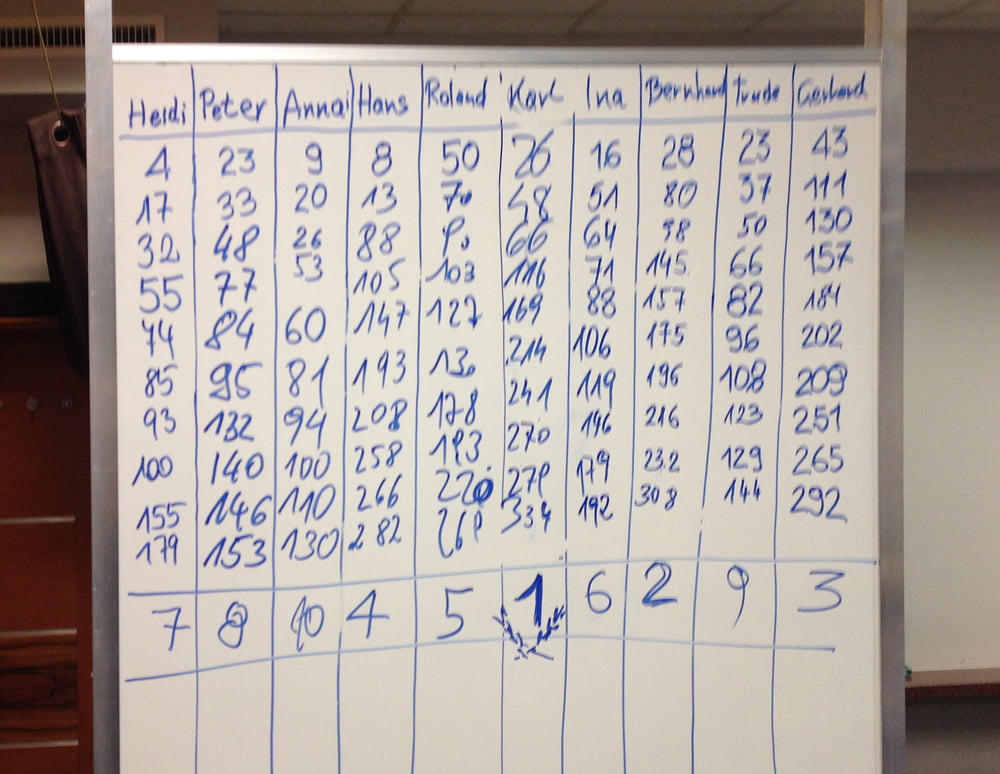 Heidi Peter Anna Hans Roland Karl Ina Bernhard Trude Gerhard
4 23 9 8 50 26 16 28 23 43
17 33 20 13 70 48 51 80 37 111
32 48 26 88 90 66 64 98 50 130
55 77 53 105 103 116 71 145 66 157
74 84 60 147 127 169 88 157 82 184
85 95 81 193 130 214 106 175 96 202
93 132 94 208 178 241 119 196 108 209
100 140 100 258 193 270 146 216 123 251
155 146 110 266 220 279 179 232 129 265
179 153 130 282 269 334 192 308 144 292
7 8 10 4 5 1 6 2 9 3